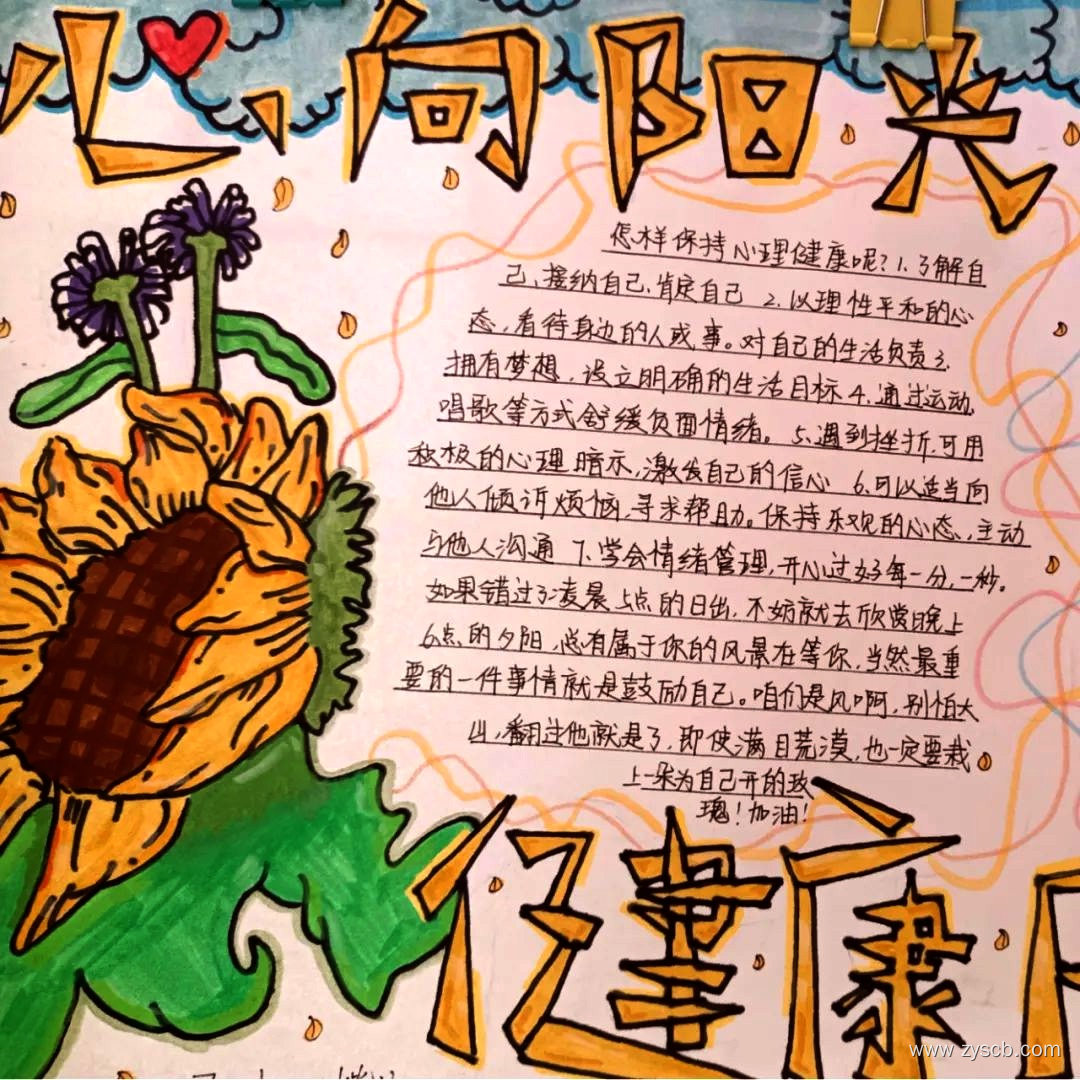 心向阳光
怎样保持心理健康呢?1.了解自
己、接纳自己、肯定自己 2.以理性平和的心
态,看待身边的人或事。对自己的生活负责3.
拥有梦想、设立明确的生活目标4.通过运动、
唱歌等方式舒缓负面情绪。5.遇到挫折,可用
积极的心理暗示,激发自己的信心 6.可以适当向
他人倾诉烦恼,寻求帮助。保持乐观的心态,主动
与他人沟通 7.学会情绪管理,开心过好每一分,一秒。
如果错过了凌晨5点的日出,不妨就去欣赏晚上
6点的夕阳,总有属于你的风景在等你,当然最重
要的一件事情就是鼓励自己。咱们是风啊,别怕大
山,翻过他就是了,即使满目荒漠,也一定要栽
上一朵为自己开的玫
瑰!加油!
健康
www.zyscb.com